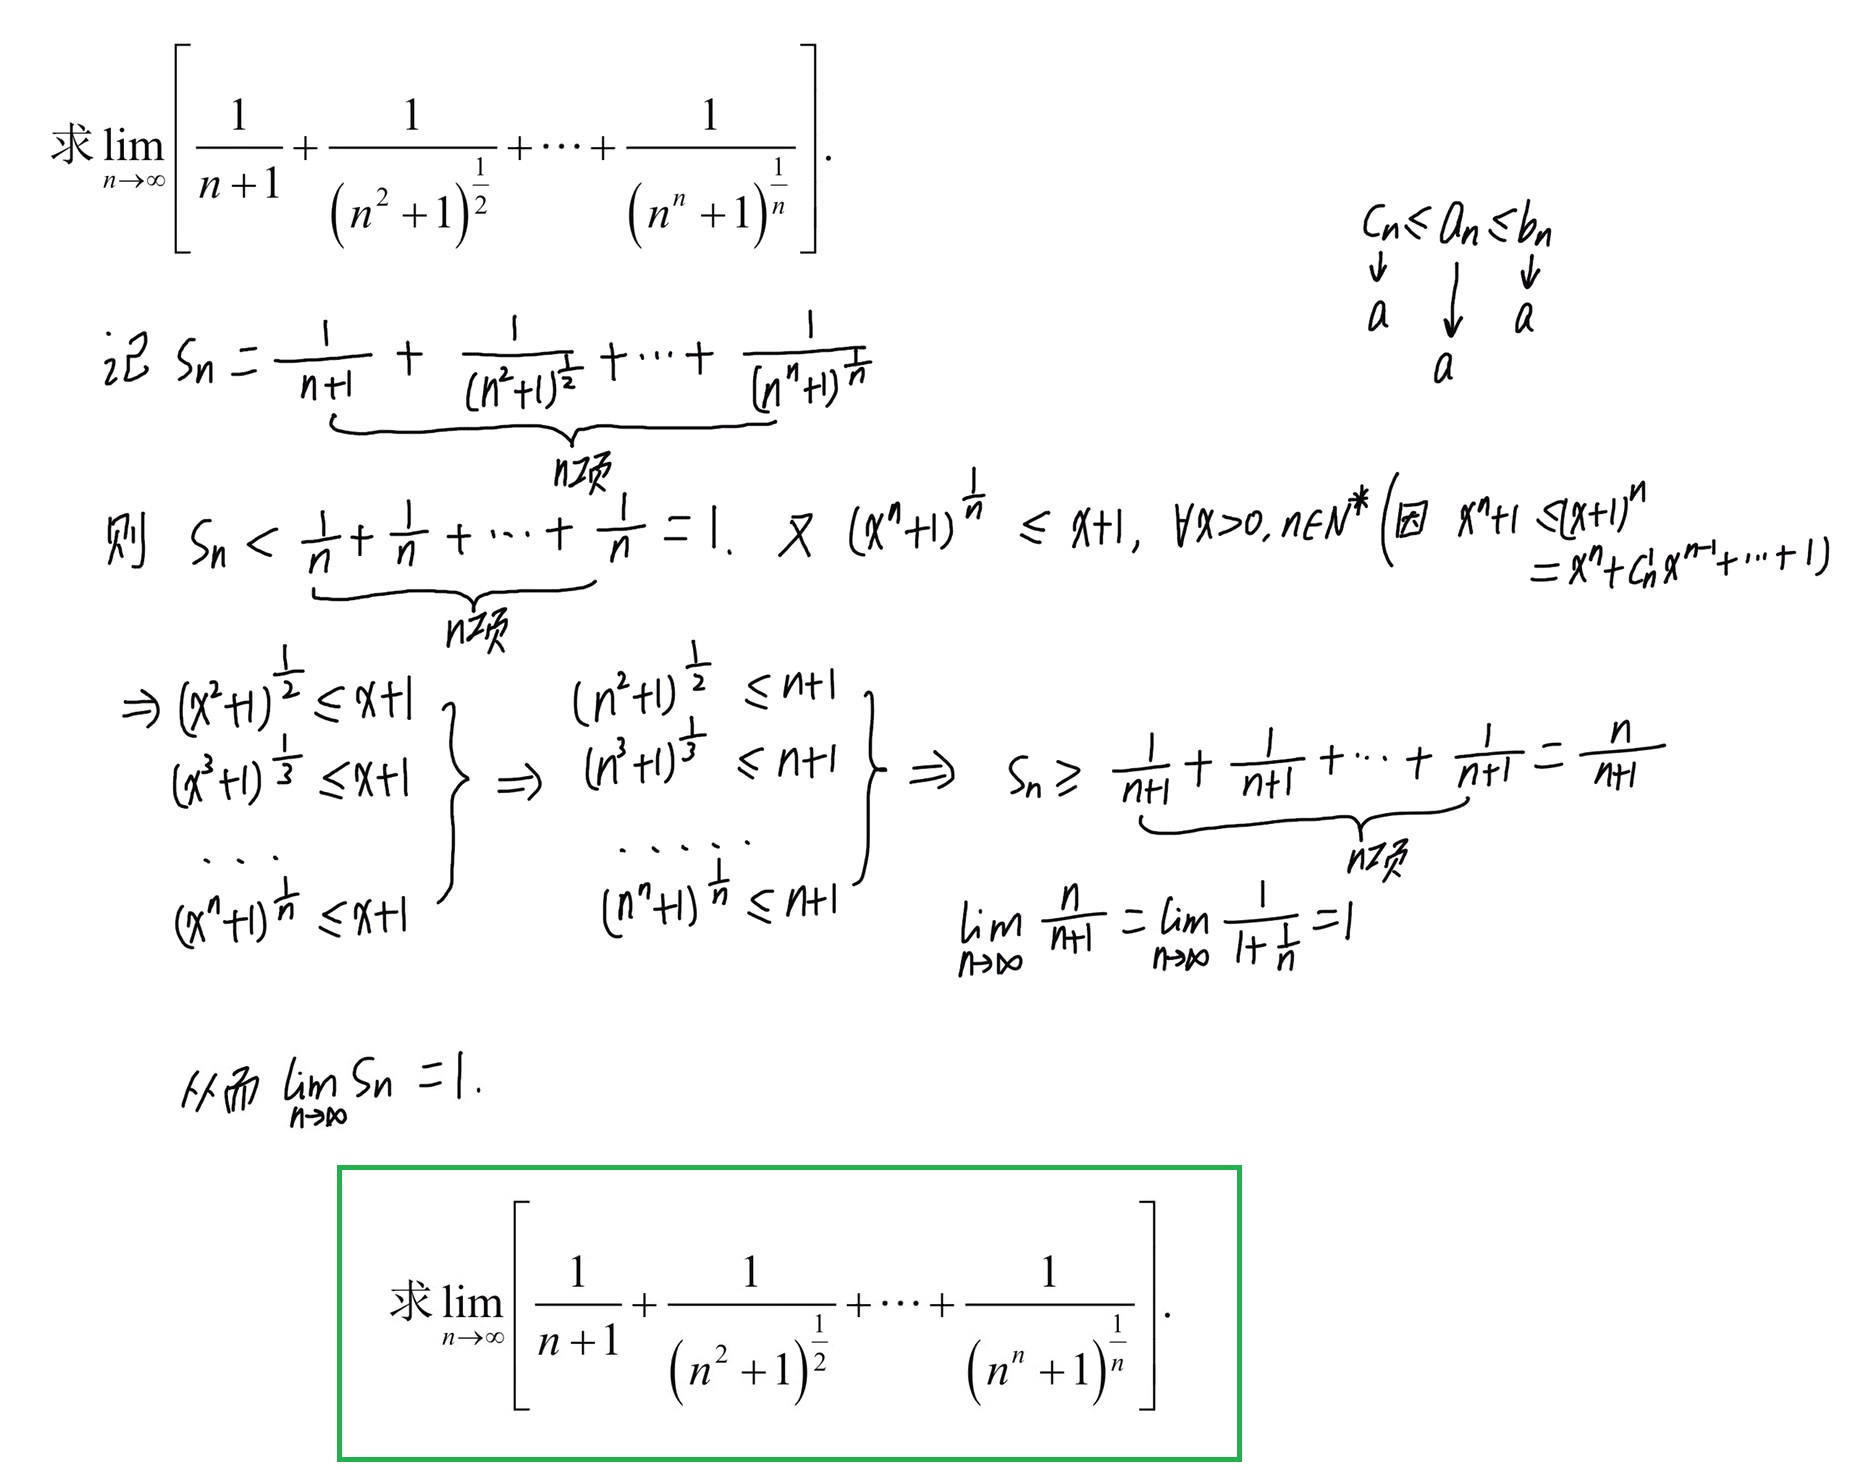 求 lim_{n→∞} [ 1/(n+1) + 1/(n²+1)^{1/2} + ··· + 1/(nⁿ+1)^{1/n} ] .
c_n ≤ a_n ≤ b_n
↓ ↓ ↓
a a
a
记 S_n = 1/(n+1) + 1/(n²+1)^{1/2} + ··· + 1/(nⁿ+1)^{1/n}
n项
则 S_n < 1/n + 1/n + ··· + 1/n = 1. 又 (xⁿ+1)^{1/n} ≤ x+1, ∀x>0, n∈N* (因 xⁿ+1 ≤ (x+1)ⁿ
= xⁿ + C_n^1 x^{n-1} + ··· + 1)
n项
⇒ (x²+1)^{1/2} ≤ x+1
(x³+1)^{1/3} ≤ x+1
· · ·
(xⁿ+1)^{1/n} ≤ x+1
⇒ (n²+1)^{1/2} ≤ n+1
(n³+1)^{1/3} ≤ n+1
· · · · ·
(nⁿ+1)^{1/n} ≤ n+1
⇒ S_n ≥ 1/(n+1) + 1/(n+1) + ··· + 1/(n+1) = n/(n+1)
n项
lim_{n→∞} n/(n+1) = lim_{n→∞} 1/(1+1/n) = 1
从而 lim_{n→∞} S_n = 1.
求 lim_{n→∞} [ 1/(n+1) + 1/(n²+1)^{1/2} + ··· + 1/(nⁿ+1)^{1/n} ] .